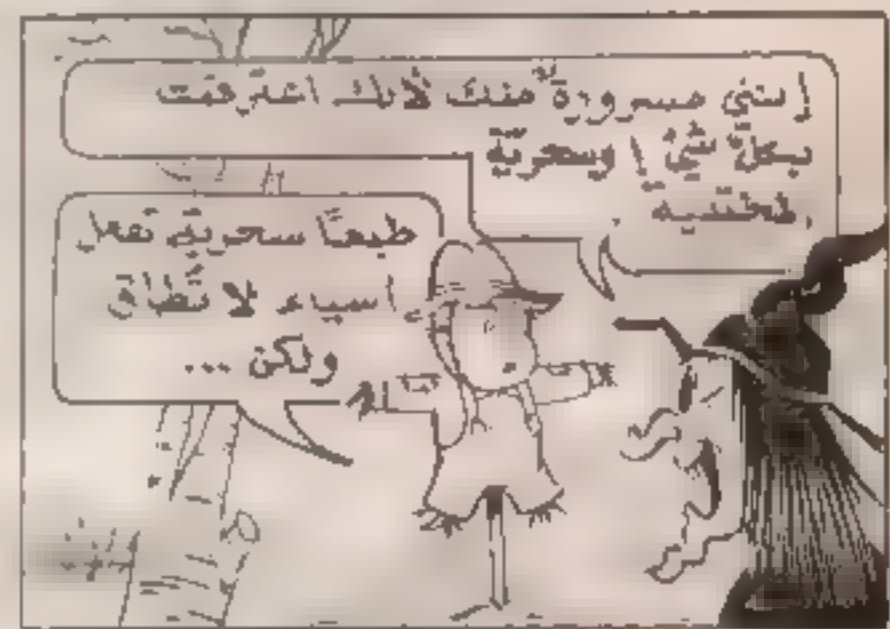 إنني مسرورة منك لأنك اشتركت
بكل شيء وسحرية
طبعًا سحرية تفعل
اشياء لا تُطاق
ولكن ...